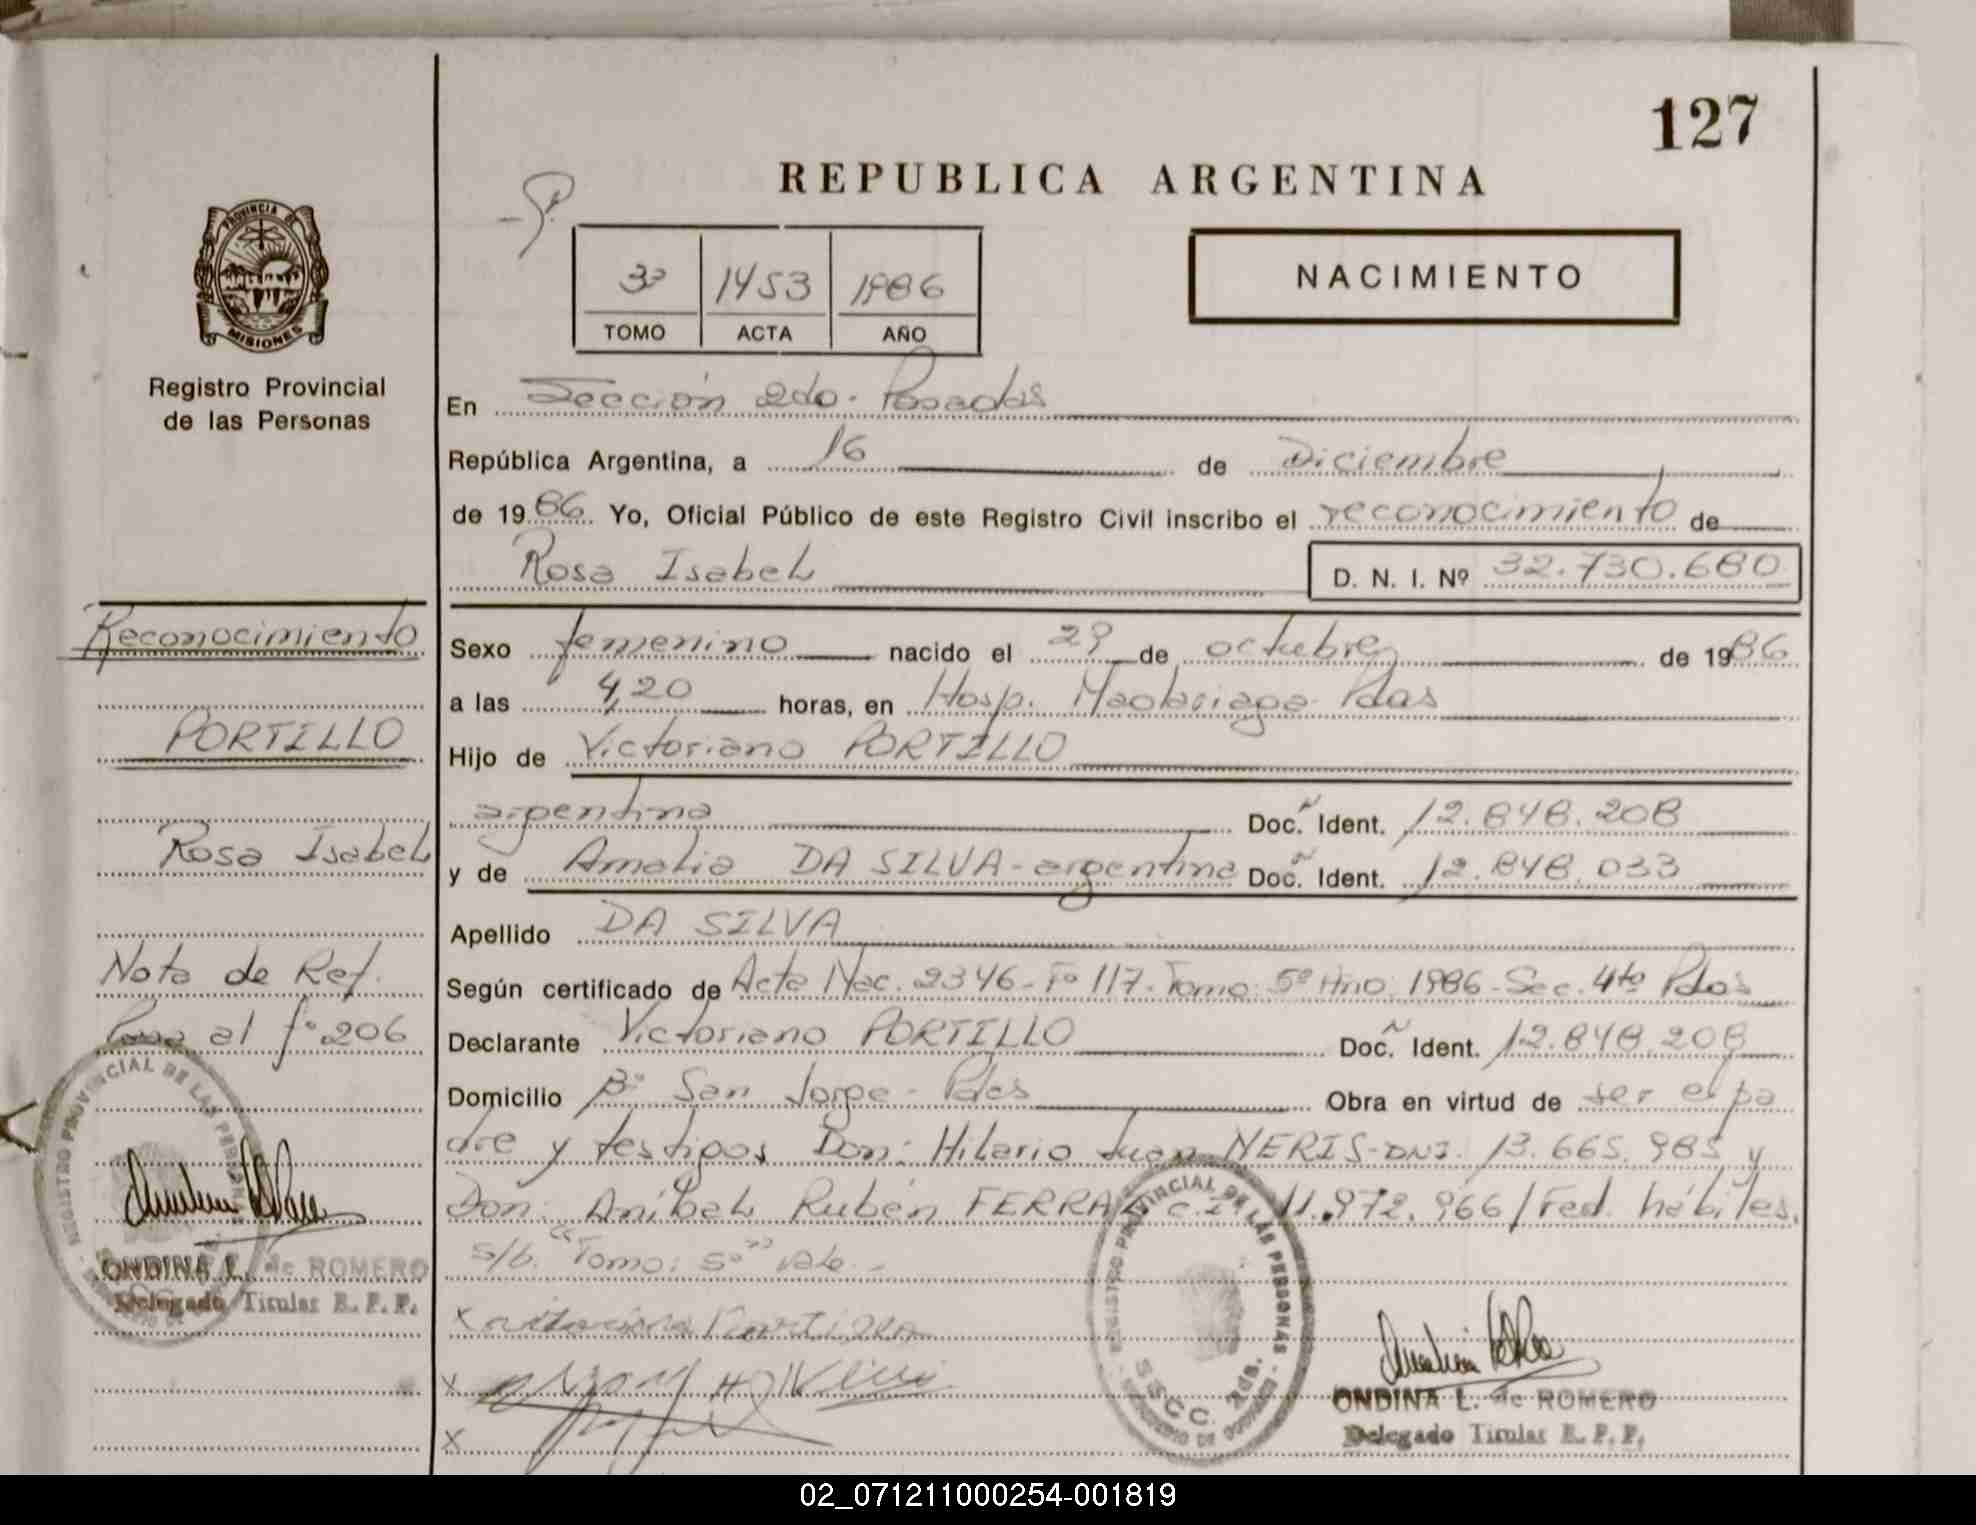 127
REPUBLICA ARGENTINA
PROVINCIA DE MISIONES
3º 1453 1986
TOMO ACTA AÑO
NACIMIENTO
Registro Provincial
de las Personas
En Sección 2da. Posadas
República Argentina, a 16 de Diciembre
de 1986. Yo, Oficial Público de este Registro Civil inscribo el reconocimiento de
Rosa Isabel D. N. I. Nº 32.730.680
Reconocimiento
PORTILLO
Rosa Isabel
Nota de Ref.
Pasa al fº 206
ONDINA L. de ROMERO
Delegado Titular R. P. P.
Sexo femenino nacido el 29 de octubre de 1986
a las 4,20 horas, en Hosp. Madariaga Pdas
Hijo de Victoriano PORTILLO
argentina Doc. Ident. 12.848.208
y de Amalia DA SILVA - argentina Doc. Ident. 12.848.033
Apellido DA SILVA
Según certificado de Acta Nac. 2346 - Fº 117 - Tomo: 5º Año: 1986 - Sec. 4ta Pdas
Declarante Victoriano PORTILLO Doc. Ident. 12.848.208
Domicilio Bº San Jorge - Pdas Obra en virtud de ser el pa
dre y testigos Don: Hilario Juan NERIS - DNI. 13.665.985 y
Don: Aníbal Rubén C.I. 11.972.966 / Fed. hábiles.
s/b. "Tomo: 5º" Vale. -
x
x
x
REGISTRO PROVINCIAL DE LAS PERSONAS
ONDINA L. de ROMERO
Delegado Titular R. P. P.
02_071211000254-001819